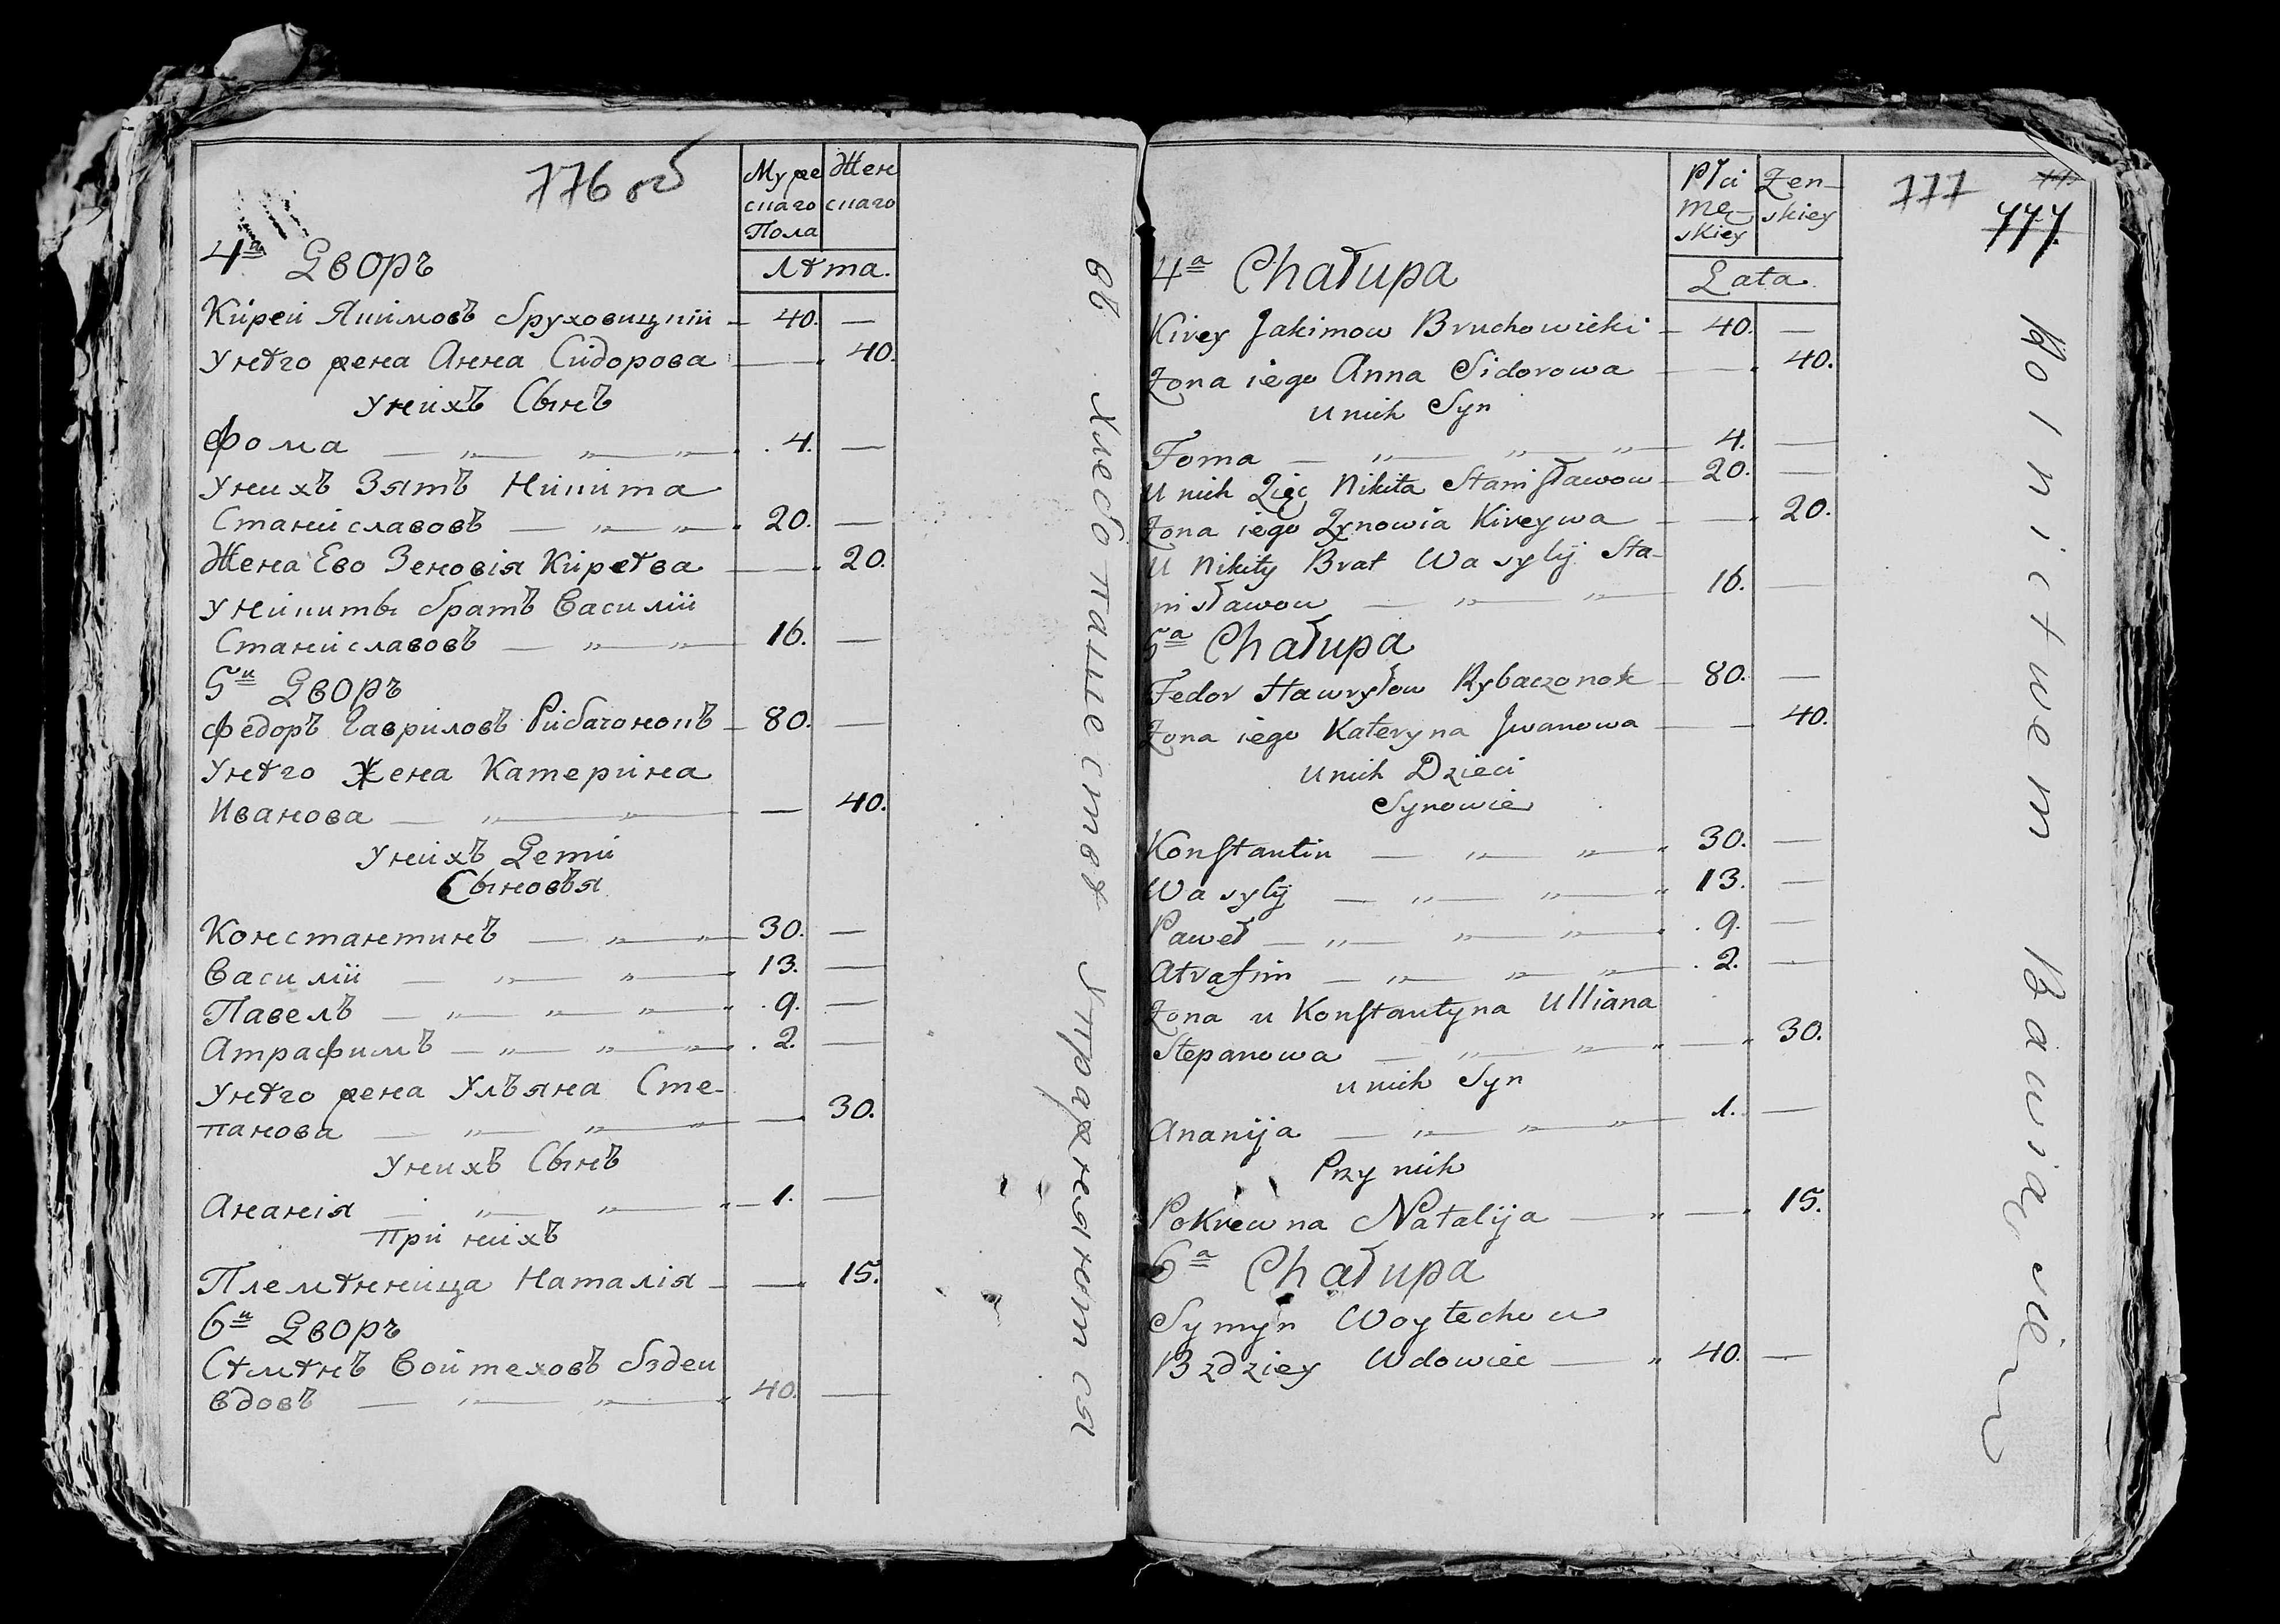 776 об
Муже Жен
скаго скаго
Пола
Лѣта.
4й Дворъ
Кирей Якимовъ Бруховицкій 40. —
У нѣго жена Анна Сидорова — 40.
У нихъ Сынъ
Фома — „ — „ — „ 4. —
У нихъ Зятъ Никита
Станиславовъ — „ — „ 20. —
Жена Ево Зеновія Кирѣева — 20.
У Никиты братъ Василій
Станиславовъ — „ — „ 16. —
5й Дворъ
Федоръ Гавриловъ Рибачонокъ 80. —
У нѣго Жена Катерина
Иванова — „ — „ — 40.
У нихъ Дети
Сыновъя
Константинъ — „ — „ 30. —
Василій — „ — „ 13. —
Павелъ — „ — „ — „ 9. —
Атрафимъ — „ — „ — „ 2. —
У нѣго жена Улъяна Сте-
панова — „ — „ — „ — 30.
У нихъ Сынъ
Ананія — „ — „ 1. —
При нихъ
Племѣнница Наталія — 15.
6й Дворъ
Сѣмѣнъ Войтеховъ бздей
вдовъ — „ — „ 40. —
въ Хлебопашествѣ Упражняются
Płci Żen-
mę- skiey
skiey
Lata
777
777.
4a Chałupa
Kirey Jakimow Bruchowicki 40. —
Żona iego Anna Sidorowa — 40.
U nich Syn
Foma — „ — „ — „ 4. —
U nich Zięć Nikita Stanisławow 20. —
Żona iego Zynowia Kireywa — 20.
U Nikity Brat Wasylij Sta-
nisławow — „ — „ 16. —
5a Chałupa
Fedor Hawryłow Rybaczonok 80. —
Żona iego Kateryna Jwanowa — 40.
U nich Dzieci
Synowie
Konstantin — „ — „ 30. —
Wasylij — „ — „ 13. —
Paweł — „ — „ — „ 9. —
Atrafim — „ — „ — „ 2. —
Żona u Konstantyna Ulliana
Stepanowa — „ — „ — 30.
U nich Syn
Ananija — „ — „ — „ 1. —
Przy nich
Pokrewna Natalija — 15.
6a Chałupa
Symyn Woytechow
Bzdziey Wdowiec — „ 40. —
Rolnictwem Bawią się